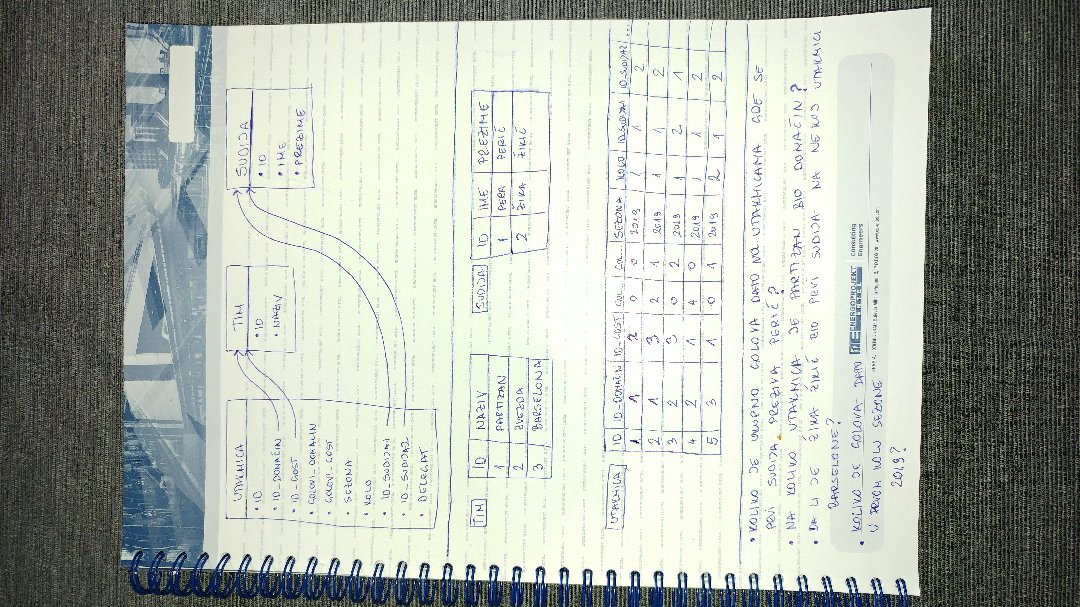 UTAKMICA
• ID
• ID-DOMAĆIN
• ID-GOST
• GOLOVI-DOMAĆIN
• GOLOVI-GOST
• SEZONA
• KOLO
• ID-SUDIJA1
• ID-SUDIJA2
• DELEGAT
TIM
• ID
• NAZIV
SUDIJA
• ID
• IME
• PREZIME
TIM
ID NAZIV
1 PARTIZAN
2 ZVEZDA
3 BARSELONA
SUDIJA
ID IME PREZIME
1 PERA PERIĆ
2 ŽIKA ŽIKIĆ
UTAKMICA
ID ID-DOMAĆIN ID-GOST GOL... GOL... SEZONA KOLO ID-SUDIJA1 ID-SUDIJA2...
1 1 2 0 0 2019 1 1 2
2 1 3 2 1 2019 1 1 2
3 2 3 0 2 2019 1 2 1
4 2 1 4 0 2019 1 1 2
5 3 1 0 1 2019 2 1 2
• KOLIKO JE UKUPNO GOLOVA DATO NA UTAKMICAMA GDE SE
PRVI SUDIJA PREZIVA PERIĆ?
• NA KOLIKO UTAKMICA JE PARTIZAN BIO DOMAĆIN?
• DA LI JE ŽIKA ŽIKIĆ BIO PRVI SUDIJA NA NEKOJ UTAKMICI
BARSELONE?
• KOLIKO JE GOLOVA DATO
U PRVOM KOLU SEZONE
2019?
ENERGOPROJEKT
ENTEL
Consulting
Engineers